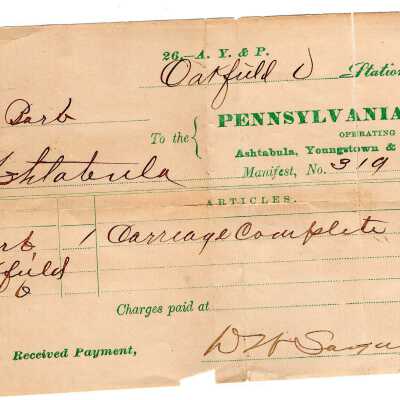 26.–A. Y. & P.
Oakfield O Station
Barb
To the { PENNSYLVANIA
OPERATING
Ashtabula, Youngstown &
Ashtabula
Manifest, No. 319
ARTICLES.
1 Carriage Complete
field
O
Charges paid at
Received Payment,
D W